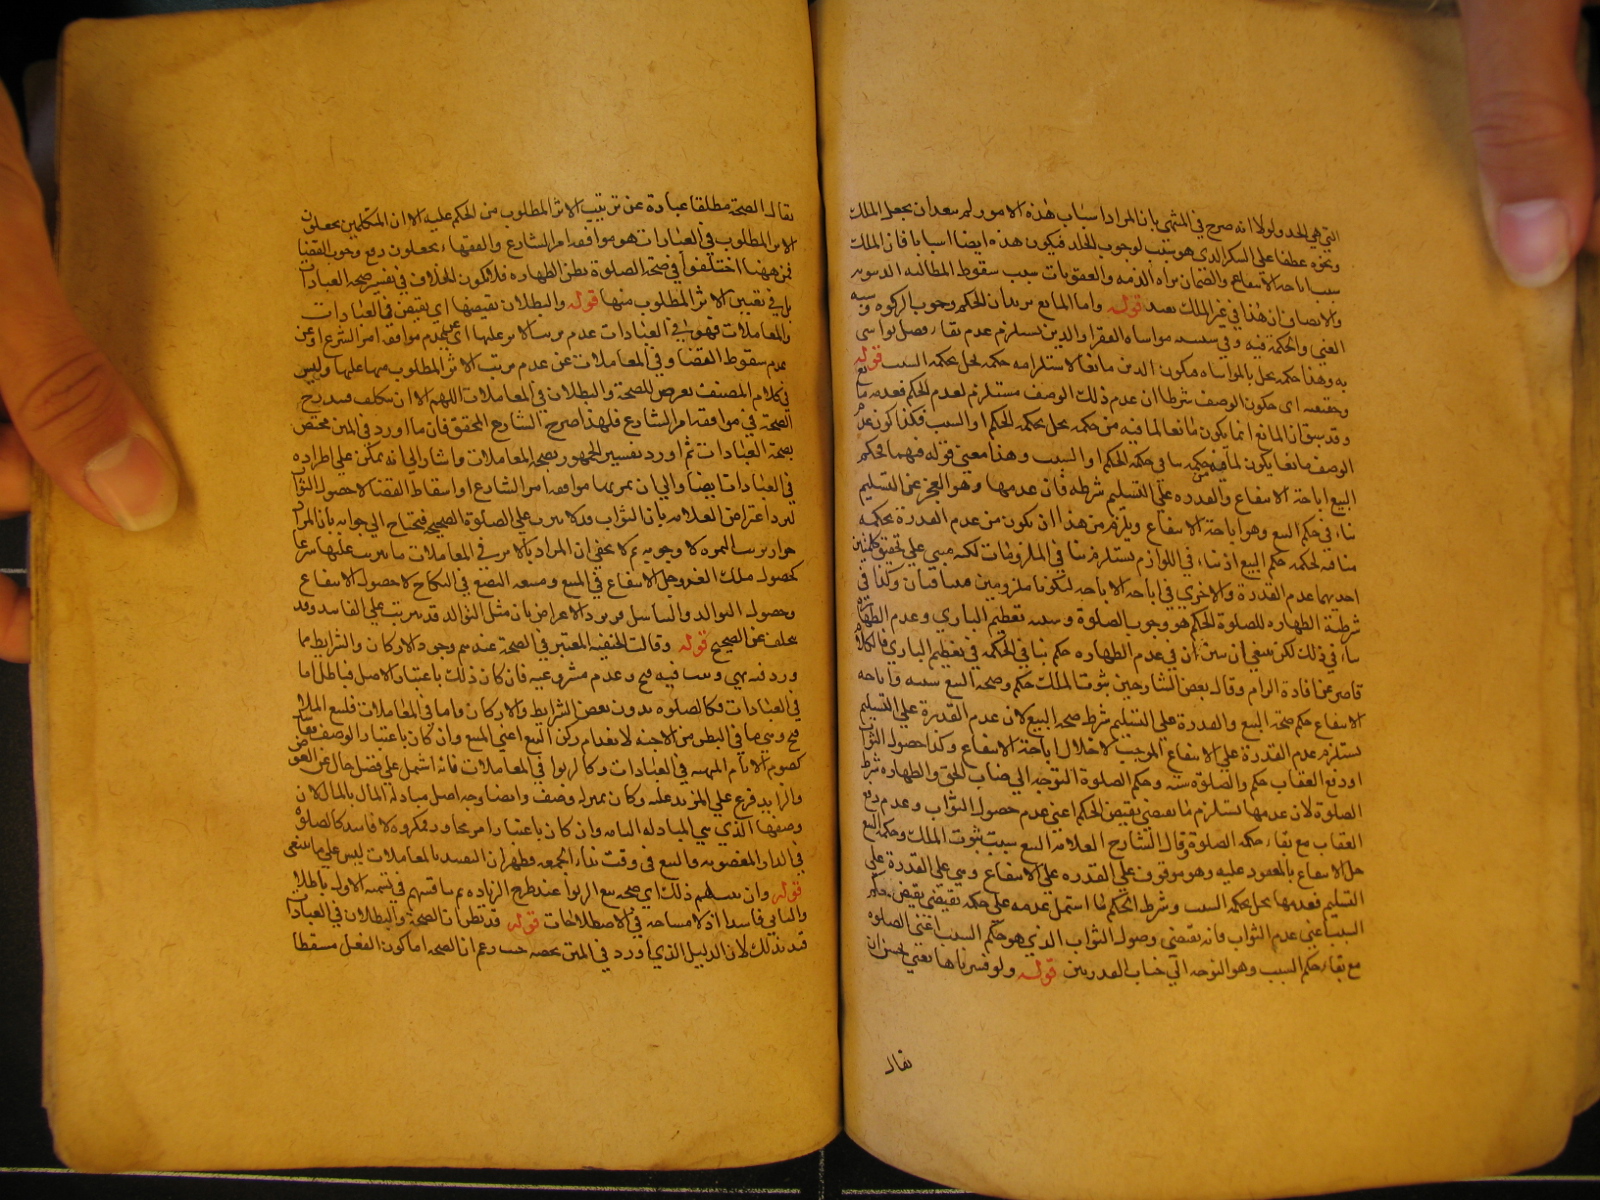 التي هي الحد ولولا انه صرح في المنتهى بان المراد اسباب هذه الامور لم يبعد ان يجعل الملك
ونحوه عطفا على السكر الذي هو سبب لوجوب الحد فيكون هذه ايضا اسبابا فان الملك
سبب اباحة الانتفاع والضمان براه الذمه والعقوبات سبب سقوط المطالبه
والانصاف ان هذا في غير الملك بعيد قوله واما المانع يريد ان الحكم وجوب الزكوة وسببه
الغنى والحكمة فيه وفي سببه مواساه الفقرا والدين يستلزم عدم بقاء فضل يواسى
به وهذا حكمه يخل بالمواساه فيكون الدين مانعا لاستلزامه حكمة تخل بحكمه السبب قوله
وحقيقته اي كون الوصف شرطا ان عدم ذلك الوصف مستلزم لعدم الحكم فعدمه مانع
وقد سبق ان المانع انما يكون مانعا لما فيه من حكمه تخل بحكمه الحكم او السبب فكذا كون عدم
الوصف مانعا يكون لما فيه من حكمه تنافي حكمه الحكم او السبب وهذا معنى قوله فيهما فحكم
البيع اباحة الانتفاع والقدره على التسليم شرطه فان عدمها وهو العجز عن التسليم
ينافي حكم البيع وهو اباحة الانتفاع ويلزم من هذا ان يكون من عدم القدرة بحكمه
منافيه لحكمه حكم البيع اذ تنافي اللوازم يستلزم تنافي الملزومات لكنه مبني على تحقيق حكمتين
احديهما عدم القدرة والاخرى في اباحه الاباحه لتكونا ملزومين متنافيان وكذا في
شرطية الطهاره للصلوة الحكم هو وجوب الصلوة وسببه تعظيم الباري وعدم الطهارة
ينافي ذلك لكن ينبغي ان يبين ان في عدم الطهاره حكم ينافي الحكمه في تعظيم الباري فالكلام
قاصر عن افادة المرام وقال بعض الشارحين ثبوت الملك حكم وصحة البيع سببه واباحه
الانتفاع حكم صحة البيع والقدرة على التسليم شرط صحه البيع لان عدم القدرة على التسليم
يستلزم عدم القدرة على الانتفاع الموجب لاخلال اباحة الانتفاع وكذا حصول الثواب
او دفع العقاب حكم والصلوة سببه وحكم الصلوة التوجه الى جناب الحق والطهاره شرط
الصلوة لان عدمها يستلزم ما يقتضي نقيض الحكم اعني عدم حصول الثواب وعدم دفع
العقاب مع بقاء حكمه الصلوة وقال الشارح العلامه البيع سبب ثبوت الملك وحكمه البيع
حل الانتفاع بالمعقود عليه وهو موقوف على القدره على الانتفاع وهي على القدرة على
التسليم فعدمها يخل بحكمه السبب وشرط الحكم ما اشتمل عدمه على حكمه تقتضي نقيض حكم
السبب اعني عدم الثواب فانه يقتضي وصول الثواب الذي هو حكم السبب اعني الصلوه
مع بقاء حكم السبب وهو التوجه الى جناب القدس قوله ولو فسرناها يعني يحسن ان
نقال
يقال الصحة مطلقا عبارة عن ترتب الاثر المطلوب من الحكم عليه الا ان المتكلمين يجعلون
الاثر المطلوب في العبادات هو موافقه امر الشارع والفقهاء يجعلون رفع وجوب القضا
فمن ههنا اختلفوا في صحة الصلوة بظن الطهاره فلا يكون الخلاف في تفسير صحه العبادات
بل في تعيين الاثر المطلوب منها قوله والبطلان نقيضها اي نقيض في العبادات
والمعاملات فهو في العبادات عدم ترتب الاثر عليها اي عدم موافقه امر الشرع او عن
عدم سقوط القضا وفي المعاملات عن عدم ترتب الاثر المطلوب منها عليها وليس
في كلام المصنف تعرض للصحة والبطلان في المعاملات اللهم الا ان يتكلف فيدرج
الصحة في موافقه امر الشارع فلهذا صرح الشارح المحقق فان ما اورد في المتن مختص
بصحة العبادات ثم اورد تفسير الجمهور بصحة المعاملات واشار الى انه يمكن على اطراده
في العبادات ايضا والى ان ثمرتها موافقه امر الشارع او اسقاط القضا لا حصول الثواب
ليرد اعتراض العلامه بان الثواب قد لا يترتب على الصلوة الصحيح فيحتاج الى جوابه بان المراد
جواز ترتب الثمره لا وجوبه ثم لا يخفى ان المراد بالاثر في المعاملات ما يترتب عليها شرعا
كحصول ملك العين وحل الانتفاع في المبيع ومتعه البضع في النكاح لا حصول الانتفاع
وحصول التوالد والتناسل فيرد الاعراض بان مثل التوالد قد يترتب على الفاسد وقد
يتخلف عن الصحيح قوله وقالت الحنفيه المعتبر في الصحة عندهم وجود الاركان والشرايط فما
ورد فيه نهي وثبت فيه قبح وعدم مشروعيه فان كان ذلك باعتبار الاصل فباطل اما
في العبادات فكالصلوه بدون بعض الشرايط والاركان واما في المعاملات فكبيع الملاقيح
وهي ما في البطن من الاجنه لانعدام ركن البيع اعني المبيع وان كان باعتبار الوصف ففاسد
كصوم الايام المنهيه في العبادات وكالربوا في المعاملات فانه اشتمل على فضل خال عن العوض
والزايد فرع على المزيد عليه وكان بمنزله وصف وايضا وجد اصل مبادلة المال بالمال لان
وصفها الذي هي المبادله التامه وان كان باعتبار امر مجاور فمكروه لا فاسد كالصلوة
في الدار المغصوبه والبيع في وقت نداء الجمعه فظهر ان التقييد بالمعاملات ليس على ما ينبغي
قوله وان ثبت لهم ذلك اي صحه بيع الربوا عند طرح الزياده ثم يناقشهم في تسميه الاول باطلا
والثاني فاسدا اذ لا مشاحه في الاصطلاحات قوله قد يظن ان الصحة والبطلان في العبادات
قيد بذلك لان الدليل الذي اورد في المتن يخصه حيث زعم ان الصحه اما كون الفعل مسقطا